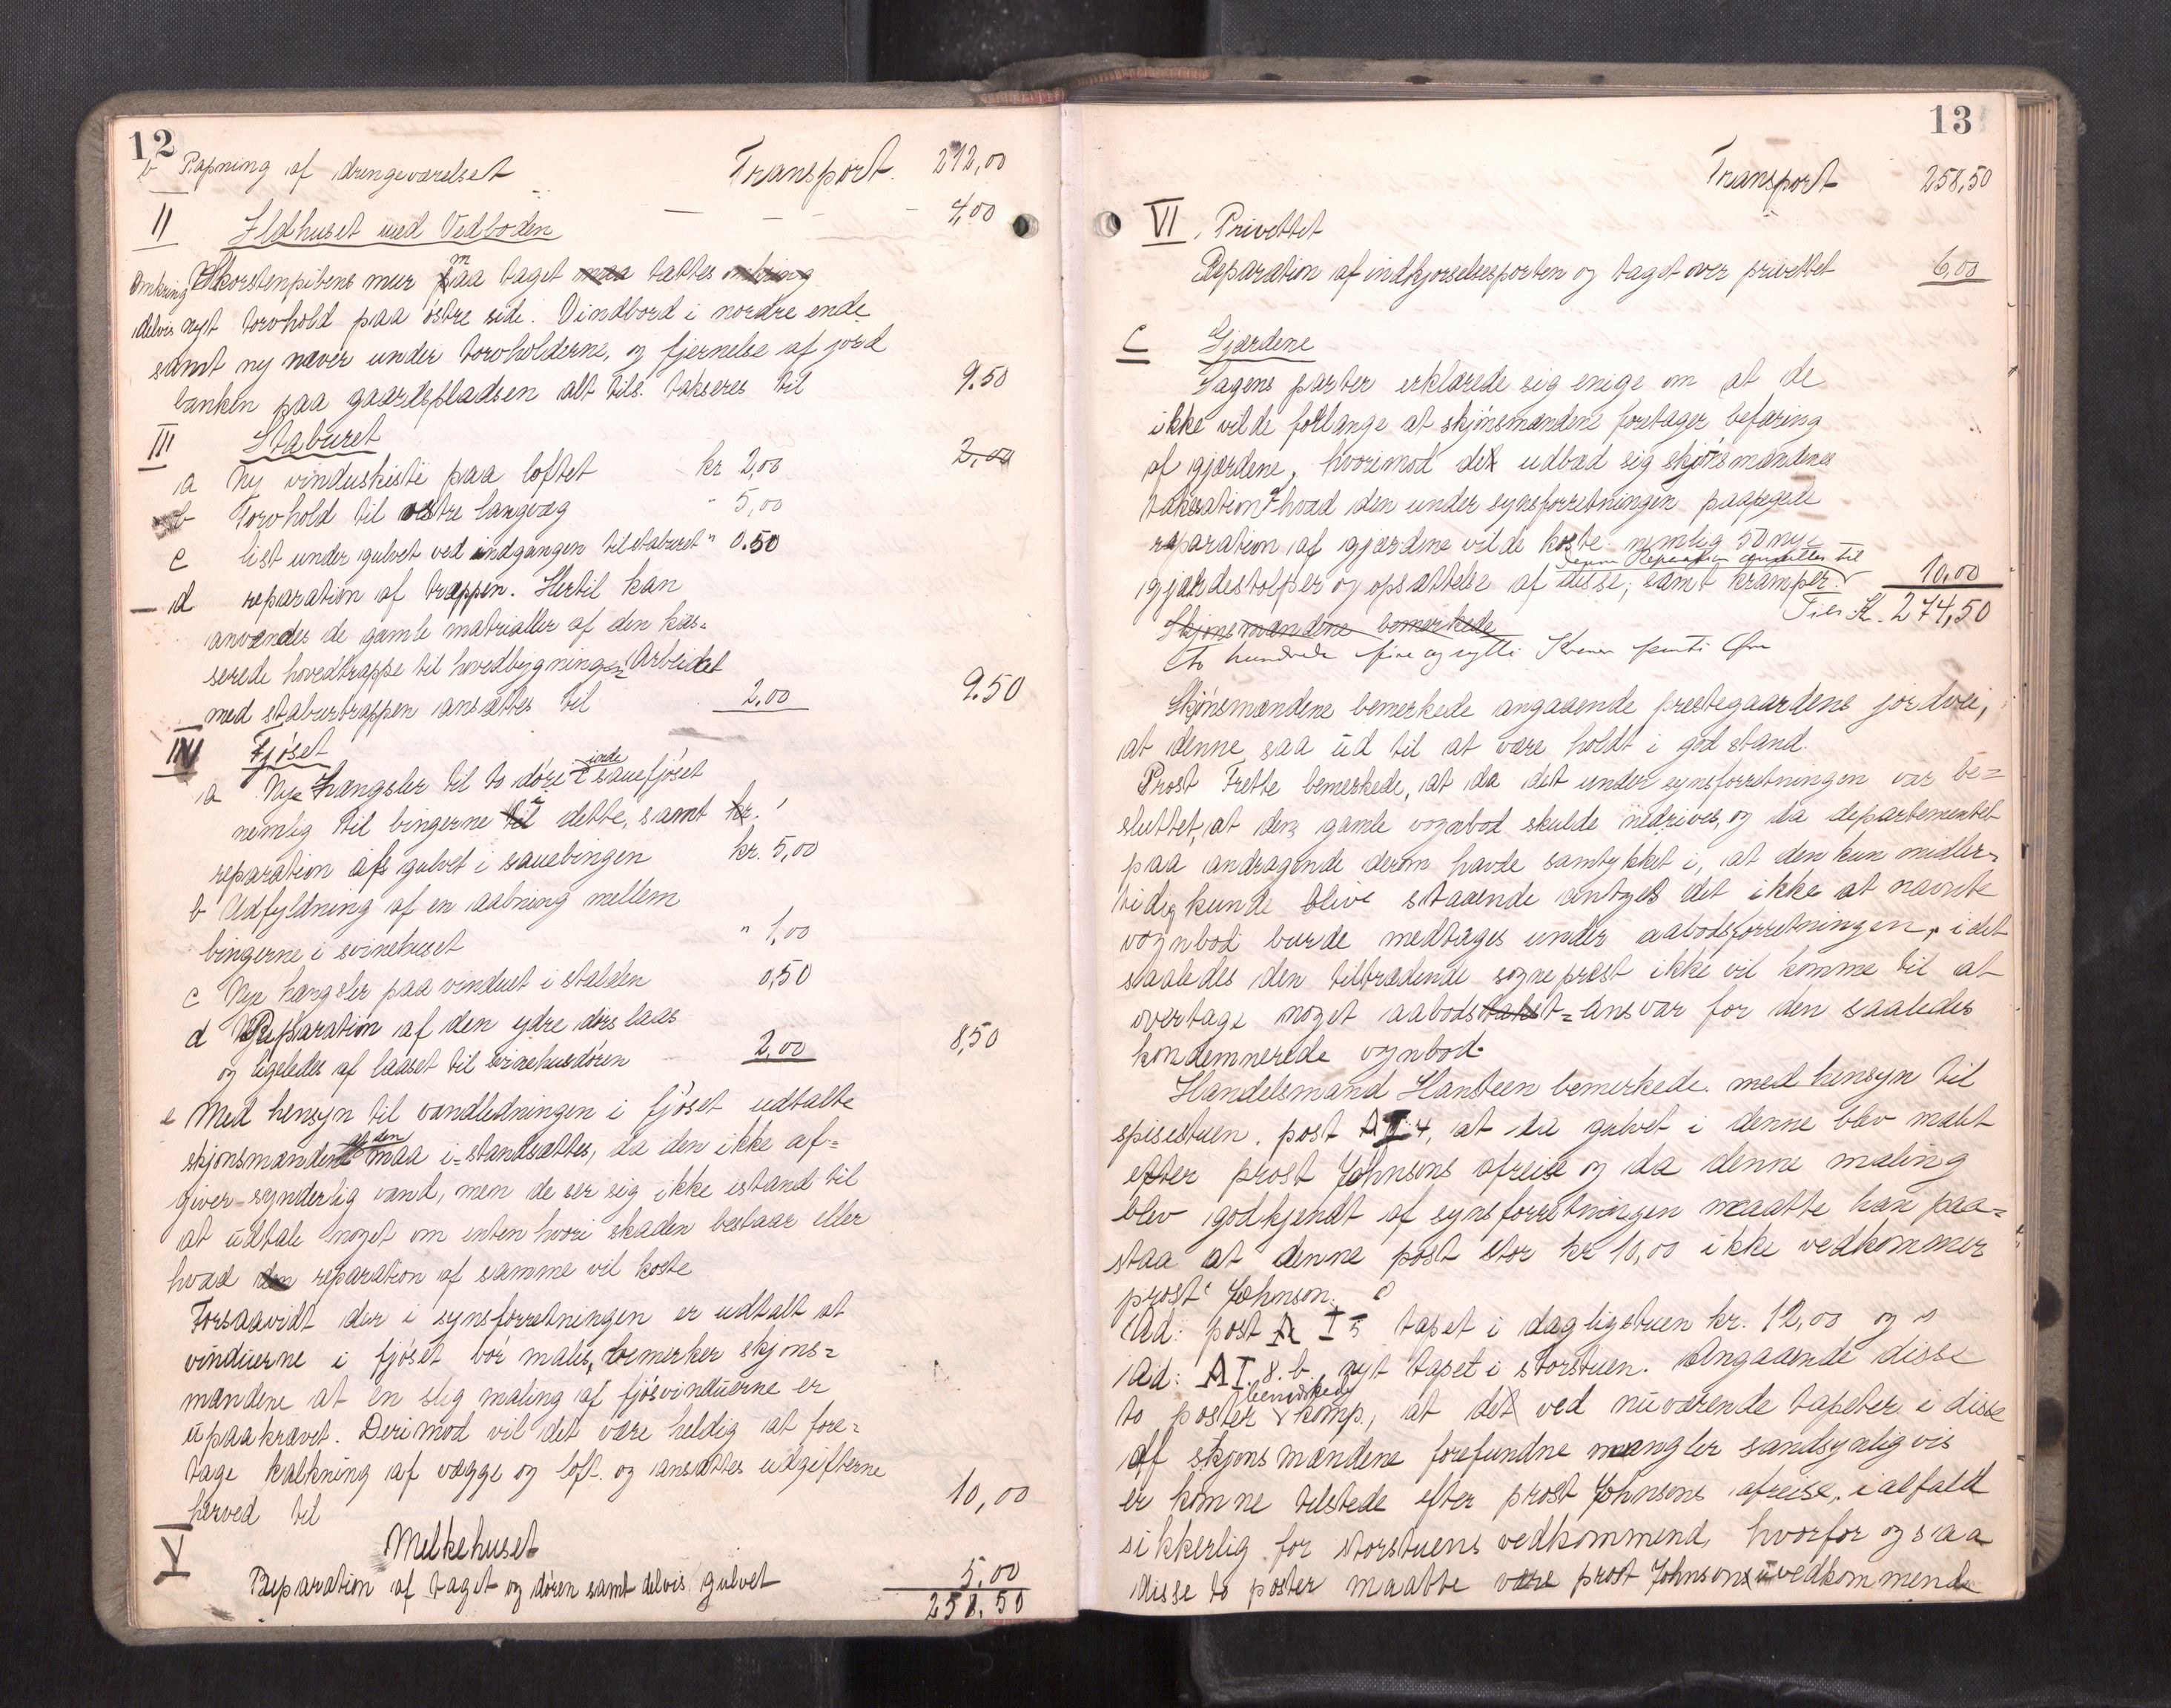 12
b Papning af drengeværelset Transport. 212,00
II Ildhuset med Vedboden 4,00
omkring Skorstenpibens mur paa taget maa tættes omkring
delvis nyt torvhold paa östre side. Vindbord i nordre ende
samt ny næver under torvholderne, og fjernelse af jord
banken paa gaardspladsen alt tils. takseres til 9.50
III Staburet
a Ny vinduskiste paa loftet kr 2,00 2,00
b Torvhold til østre langvæg " 5,00
c list under gulvet ved indgangen til staburet " 0.50
d reparation af trappen. Hertil kan
anvendes de gamle matrialler af den kas=
serede hovedtrappe til hovedbygningen. Arbeidet
med staburtrappen ansættes til 2,00 9.50
IV Fjöset
a Nye Hængsler til to döre i sauefjöset
nemlig til bingerne i dette, samt kr.
reparation af gulvet i sauebingen kr. 5,00
b Udfyldning af en aabning mellem
bingerne i svinehuset " 1,00
c Nye hængsler paa vinduet i stalden 0,50
d Reparation af den ydre dörs laas
og ligeledes af laaset til svinehusdören 2,00 8,50
e Med hensyn til vandledningen i fjöset udtalte
skjönsmændene at den maa i=standsættes, da den ikke af=
giver synderlig vand, men de ser sig ikke istand til
at udtale noget om enten hvori skaden bestaar eller
hvad den reparation af samme vil koste
Forsaavidt der i synsforretningen er udtalt at
vinduerne i fjöset bör males, bemerker skjöns=
mændene at en slig maling af fjösvinduerne er
upaakrævet. Derimod vil det være heldig at fore=
tage kalkning af vægge og loft. og ansættes udgifterne
herved til 10,00
V Melkehuset
Reparation af taget og dören samt delvis gulvet 5,00
258,50
13
Transport 258,50
VI. Privettet
Reparation af indkjørselsporten og taget over privettet 6,00
C Gjærdene
Dagens parter erklærede sig enige om at de
ikke vilde forlange at skjönsmændene foretager befaring
af gjærdene, hvorimod de udbad sig skjönsmændenes
taksation af hvad den under synsforretningen paapegede
reparation af gjærdene vilde koste nemlig 50 nye
gjærdestolper og opsættelse af disse, samt kramper. denne Reparation ansættes til 10,00
Tils Kr. 274,50
Skjönsmændene bemerkede
to hundrede fire og sytti Kroner femti Øre
Skjönsmændene bemerkede angaaende prestegaardens jordvei,
at denne saa ud til at være holdt i god stand.
Prost Frette bemerkede, at da det under synsforretningen var be=
sluttet, at den gamle vognbod skulde nedrives, og da departementet
paa andragende derom havde samtykket i, at den kun midler=
tidig kunde blive staaende antoges det ikke at nævnte
vognbod burde medtages under aabodsforretningen, idet
saaledes den tiltrædende sogneprest ikke vil komme til at
overtage noget aabods=ansvar for den saaledes
kondemnerede vognbod.
Handelsmand Hansteen bemerkede med hensyn til
spisestuen, post A I 4, at da gulvet i denne blev malet
efter prost Johnsons afreise og da denne maling
blev godkjendt af synsforretningen maatte han paa=
staa at denne post stor kr 10,00 ikke vedkommer
prost Johnson.
Ad: post A I 5 tapet i dagligstuen kr. 12,00 og
Ad: A I. 8. b. nyt tapet i storstuen. Angaaende disse
to poster bemerkede komp., at de ved nuværende tapeter i disse
af skjönsmændene forefundne mangler sandsynligvis
er komne tilstede efter prost Johnsons afreise, ialfald
sikkerlig for storstuens vedkommend, hvorfor ogsaa
disse to poster maatte være prost Johnson uvedkommende